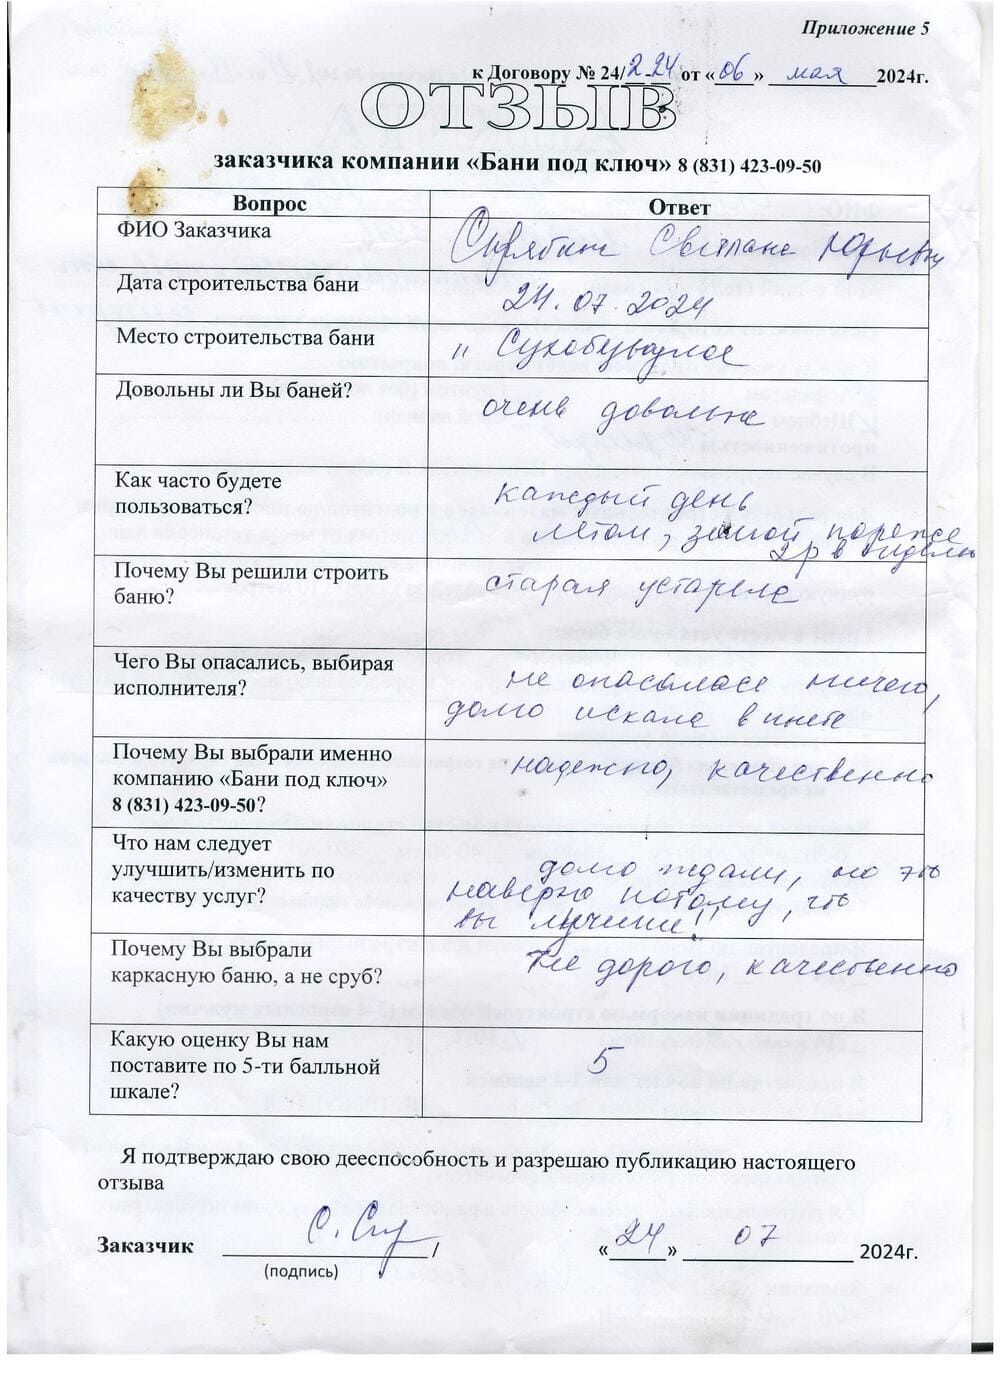 Приложение 5
к Договору № 24/2-24 от «06» мая 2024г.
ОТЗЫВ
заказчика компании «Бани под ключ» 8 (831) 423-09-50
Вопрос Ответ
ФИО Заказчика Светлана Юрьевна
Дата строительства бани 24.07.2024
Место строительства бани
Довольны ли Вы баней? очень довольна
Как часто будете каждый день
пользоваться? летом, зимой пореже
2р в неделю
Почему Вы решили строить старая устарела
баню?
Чего Вы опасались, выбирая не опасалась ничего,
исполнителя? долго искала в инете
Почему Вы выбрали именно надежно, качественно
компанию «Бани под ключ»
8 (831) 423-09-50?
Что нам следует долго ждали, но это
улучшить/изменить по наверно потому, что
качеству услуг? вы лучшие!!
Почему Вы выбрали не дорого, качественно
каркасную баню, а не сруб?
Какую оценку Вы нам 5
поставите по 5-ти балльной
шкале?
Я подтверждаю свою дееспособность и разрешаю публикацию настоящего
отзыва
Заказчик / «24» 07 2024г.
(подпись)